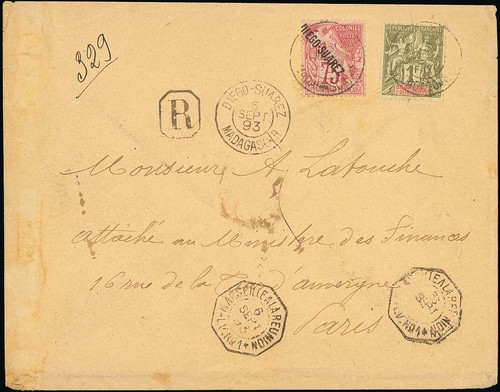 329
COLONIES
DIEGO-SUAREZ
75
RÉPUBLIQUE FRANÇAISE
1F
R
DIEGO-SUAREZ
5
SEPT
93
MADAGASCAR
Monsieur A Latouche
attaché au Ministère des Finances
16 rue de la d'auvergne
Paris
MARSEILLE A LA REUNION
6
SEPT
93